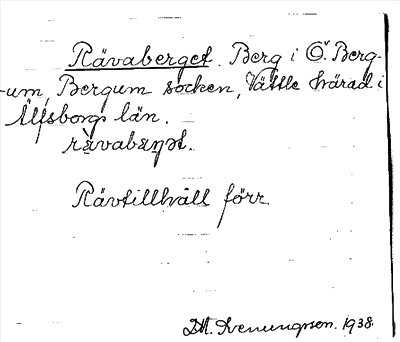 Rävaberget. Berg i Ö. Berg-
um, Bergum socken, Vättle härad i
Älfsborgs län.
rävabærjet.
Rävtillhåll förr.
D.M. Svenungsson. 1938.